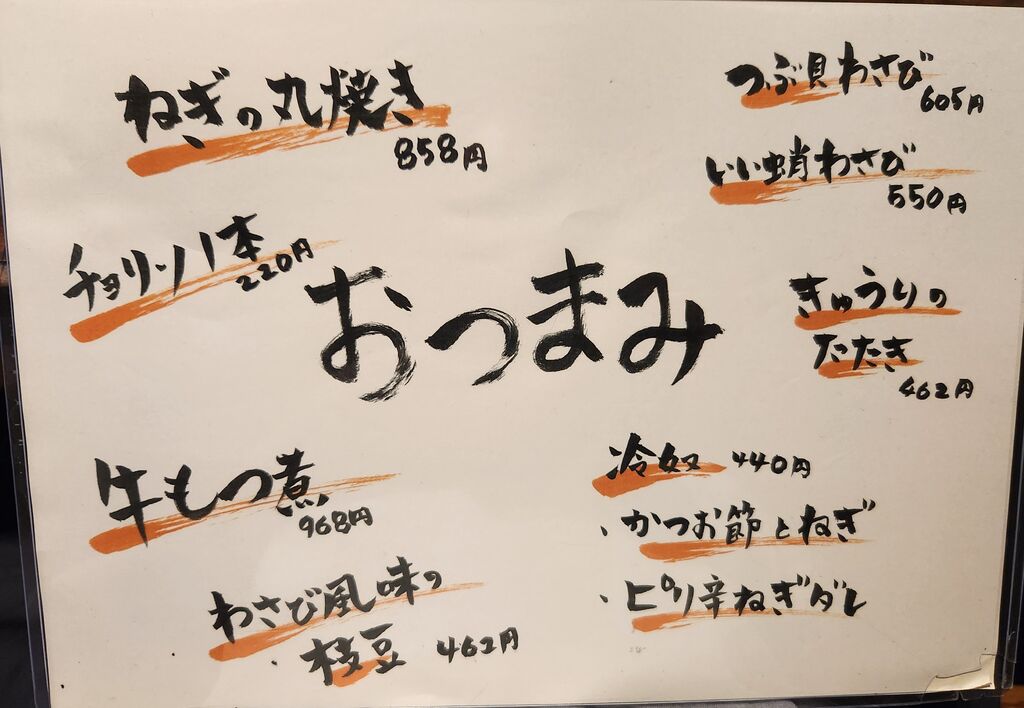 ねぎの丸焼き
858円
チョリソー1本
220円
おつまみ
牛もつ煮
968円
わさび風味の
枝豆 462円
つぶ貝わさび
605円
いい蛸わさび
550円
きゅうりの
たたき
462円
冷奴 440円
・かつお節とねぎ
・ピリ辛ねぎダレ